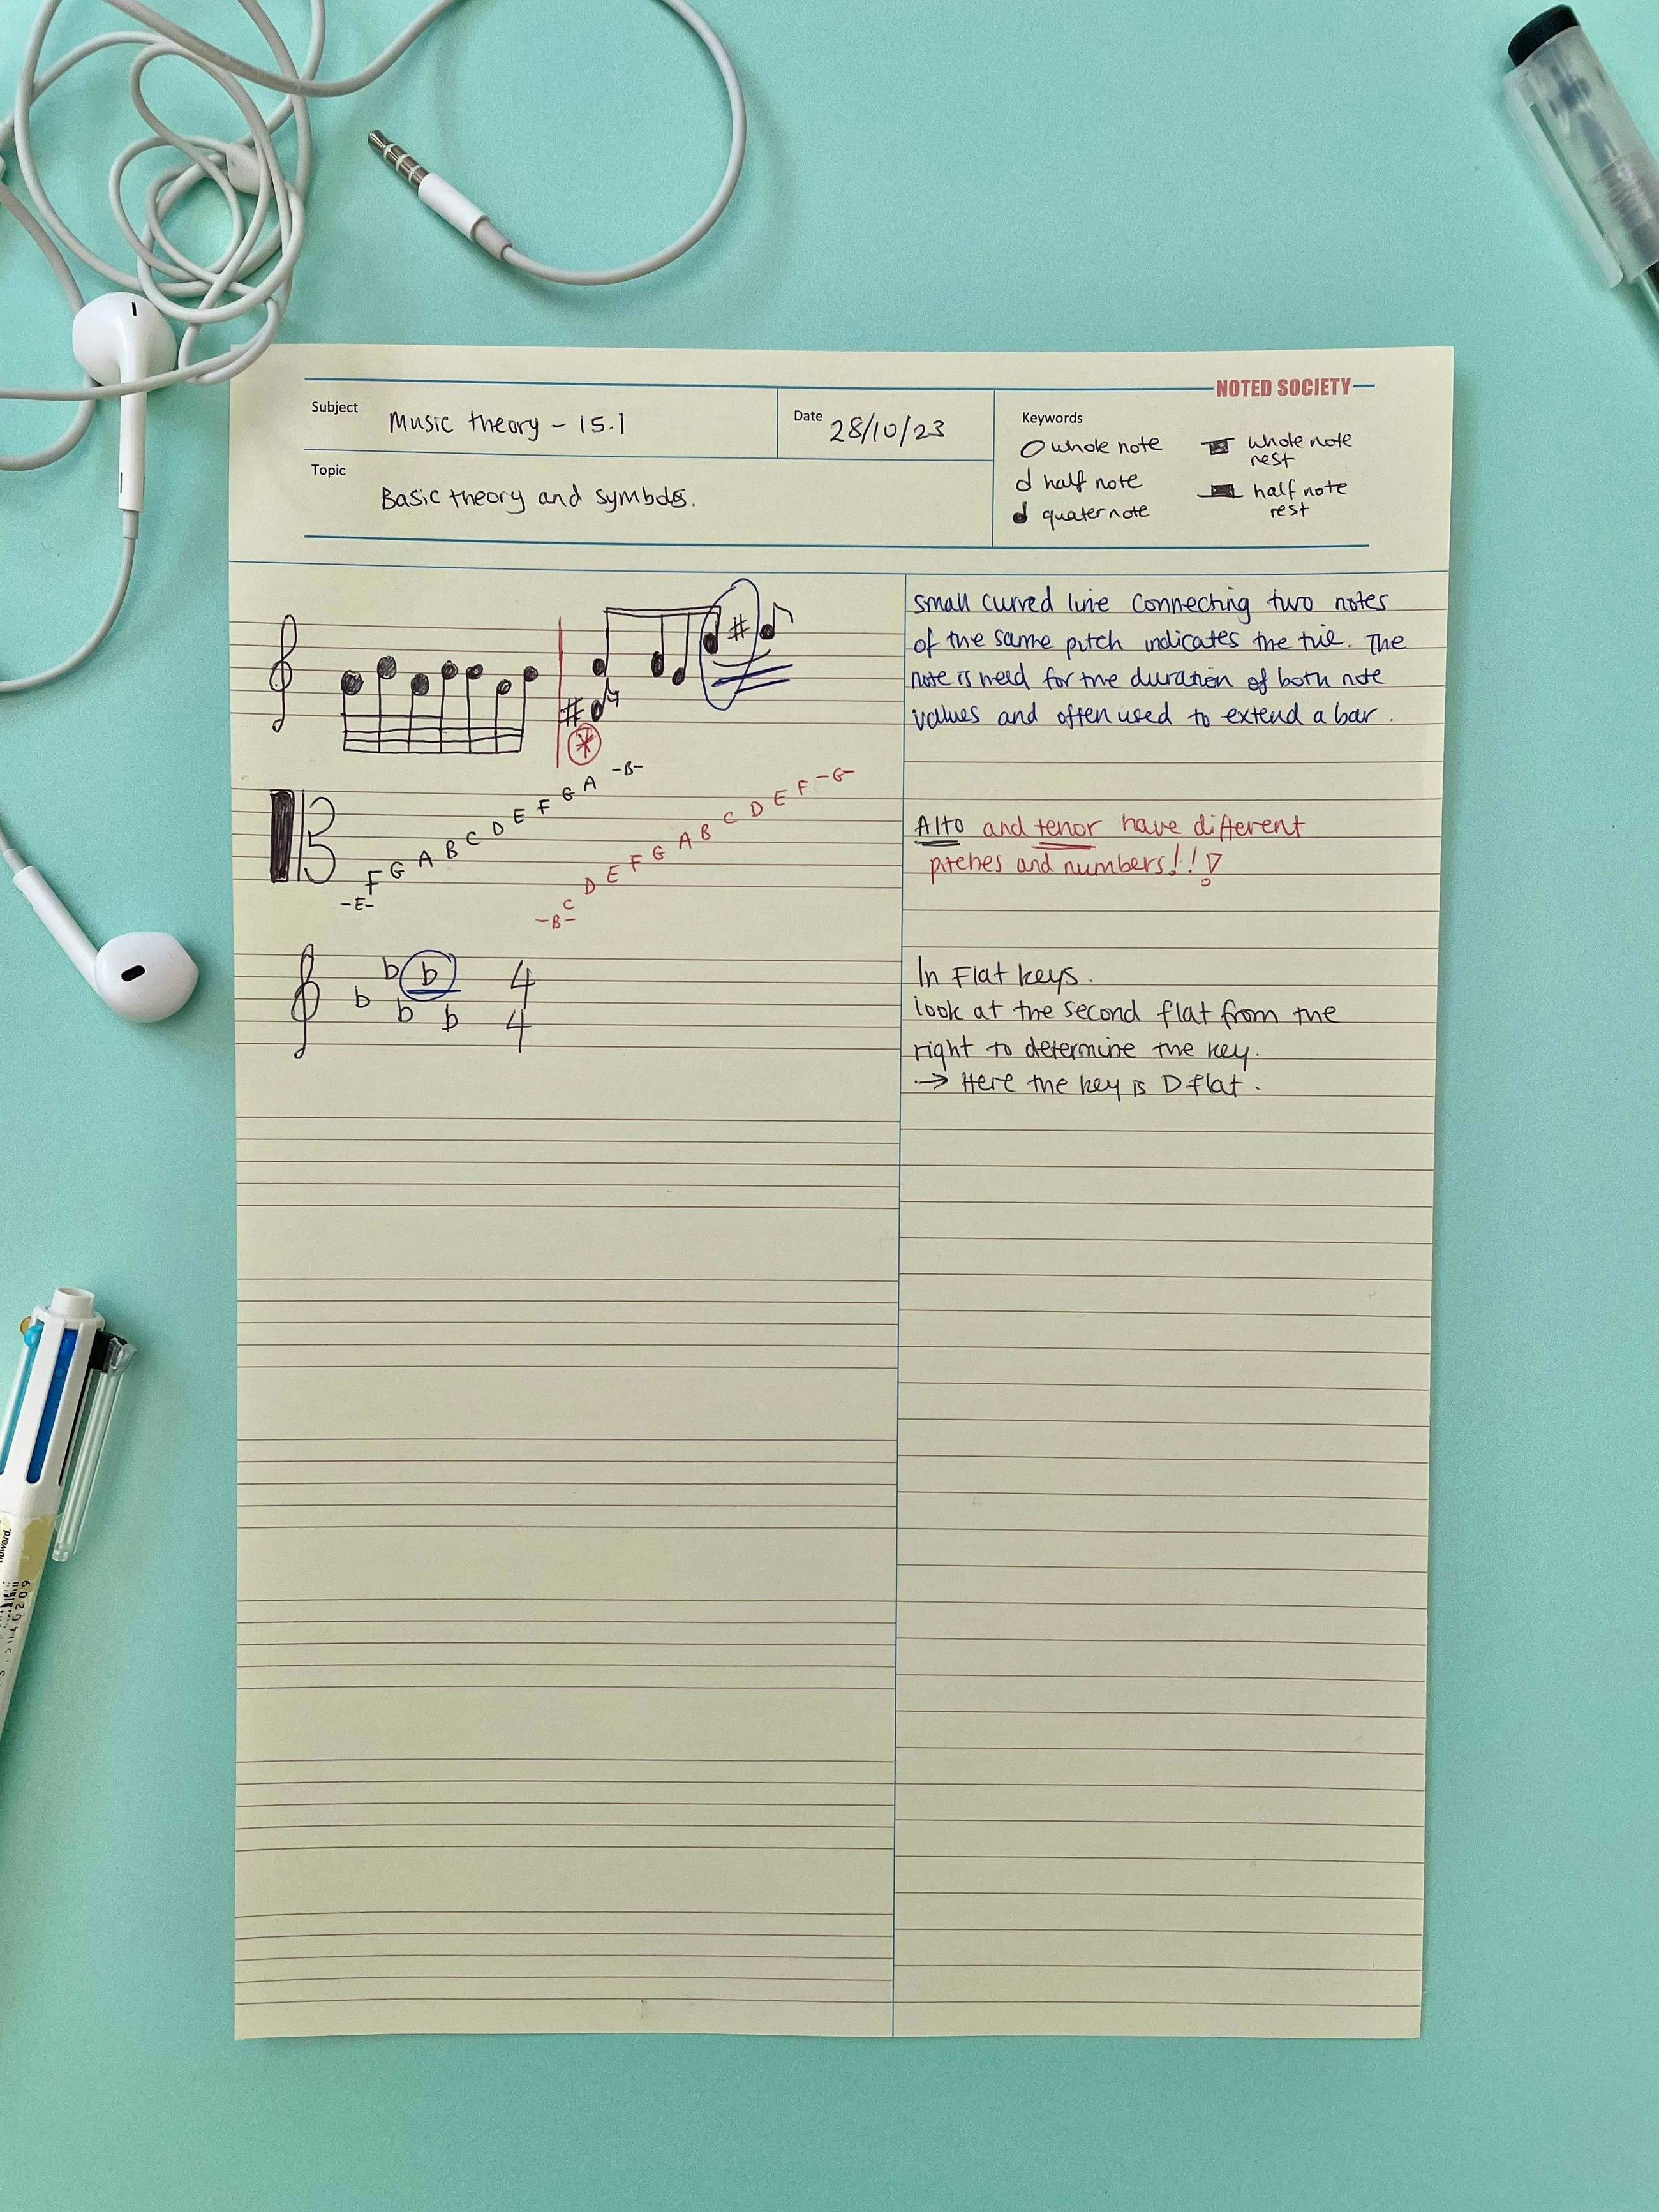 NOTED SOCIETY
Subject Music theory - 15.1
Date 28/10/23
Topic Basic theory and symbols.
Keywords
whole note
half note
quater note
whole note
rest
half note
rest
small curved line connecting two notes
of the same pitch indicates the tie. The
note is held for the duration of both note
values and often used to extend a bar.
-E- F G A B C D E F G A -B-
-B- C D E F G A B C D E F -G-
Alto and tenor have different
pitches and numbers!!!
b b b b b 4
4
In Flat keys.
look at the second flat from the
right to determine the key.
→ Here the key is D flat.